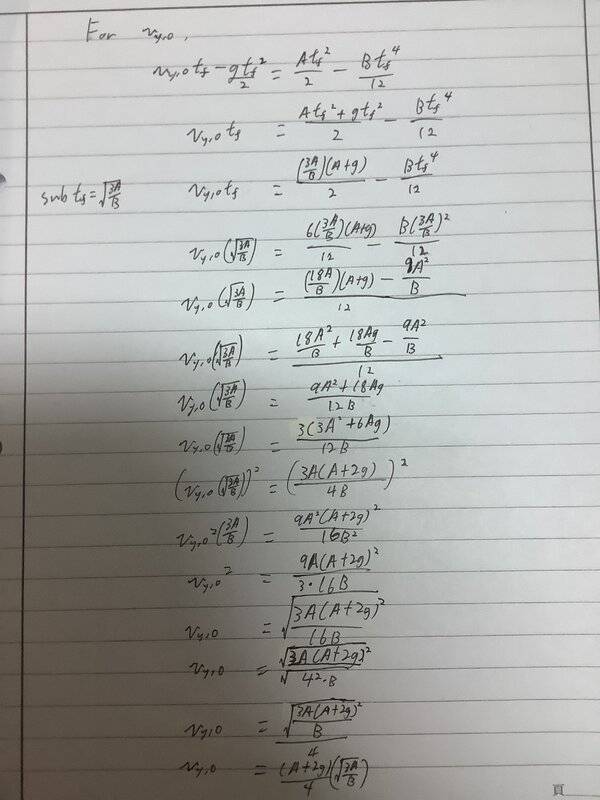 For v_{y,0},
v_{y,0} t_f - \frac{g t_f^2}{2} = \frac{A t_f^2}{2} - \frac{B t_f^4}{12}
v_{y,0} t_f = \frac{A t_f^2 + g t_f^2}{2} - \frac{B t_f^4}{12}
sub t_f = \sqrt{\frac{3A}{B}} v_{y,0} t_f = \frac{(\frac{3A}{B})(A+g)}{2} - \frac{B t_f^4}{12}
v_{y,0} (\sqrt{\frac{3A}{B}}) = \frac{6(\frac{3A}{B})(A+g)}{12} - \frac{B(\frac{3A}{B})^2}{12}
v_{y,0} (\sqrt{\frac{3A}{B}}) = \frac{(\frac{18A}{B})(A+g) - \frac{9A^2}{B}}{12}
v_{y,0} (\sqrt{\frac{3A}{B}}) = \frac{\frac{18A^2}{B} + \frac{18Ag}{B} - \frac{9A^2}{B}}{12}
v_{y,0} (\sqrt{\frac{3A}{B}}) = \frac{9A^2 + 18Ag}{12B}
v_{y,0} (\sqrt{\frac{3A}{B}}) = \frac{3(3A^2 + 6Ag)}{12B}
(v_{y,0} (\sqrt{\frac{3A}{B}}))^2 = (\frac{3A(A+2g)}{4B})^2
v_{y,0}^2 (\frac{3A}{B}) = \frac{9A^2(A+2g)^2}{16B^2}
v_{y,0}^2 = \frac{9A(A+2g)^2}{3·16B}
v_{y,0} = \sqrt{\frac{3A(A+2g)^2}{16B}}
v_{y,0} = \frac{\sqrt{3A(A+2g)^2}}{\sqrt{4^2·B}}
v_{y,0} = \frac{\sqrt{\frac{3A(A+2g)^2}{B}}}{4}
v_{y,0} = \frac{(A+2g)}{4} (\sqrt{\frac{3A}{B}})
頁